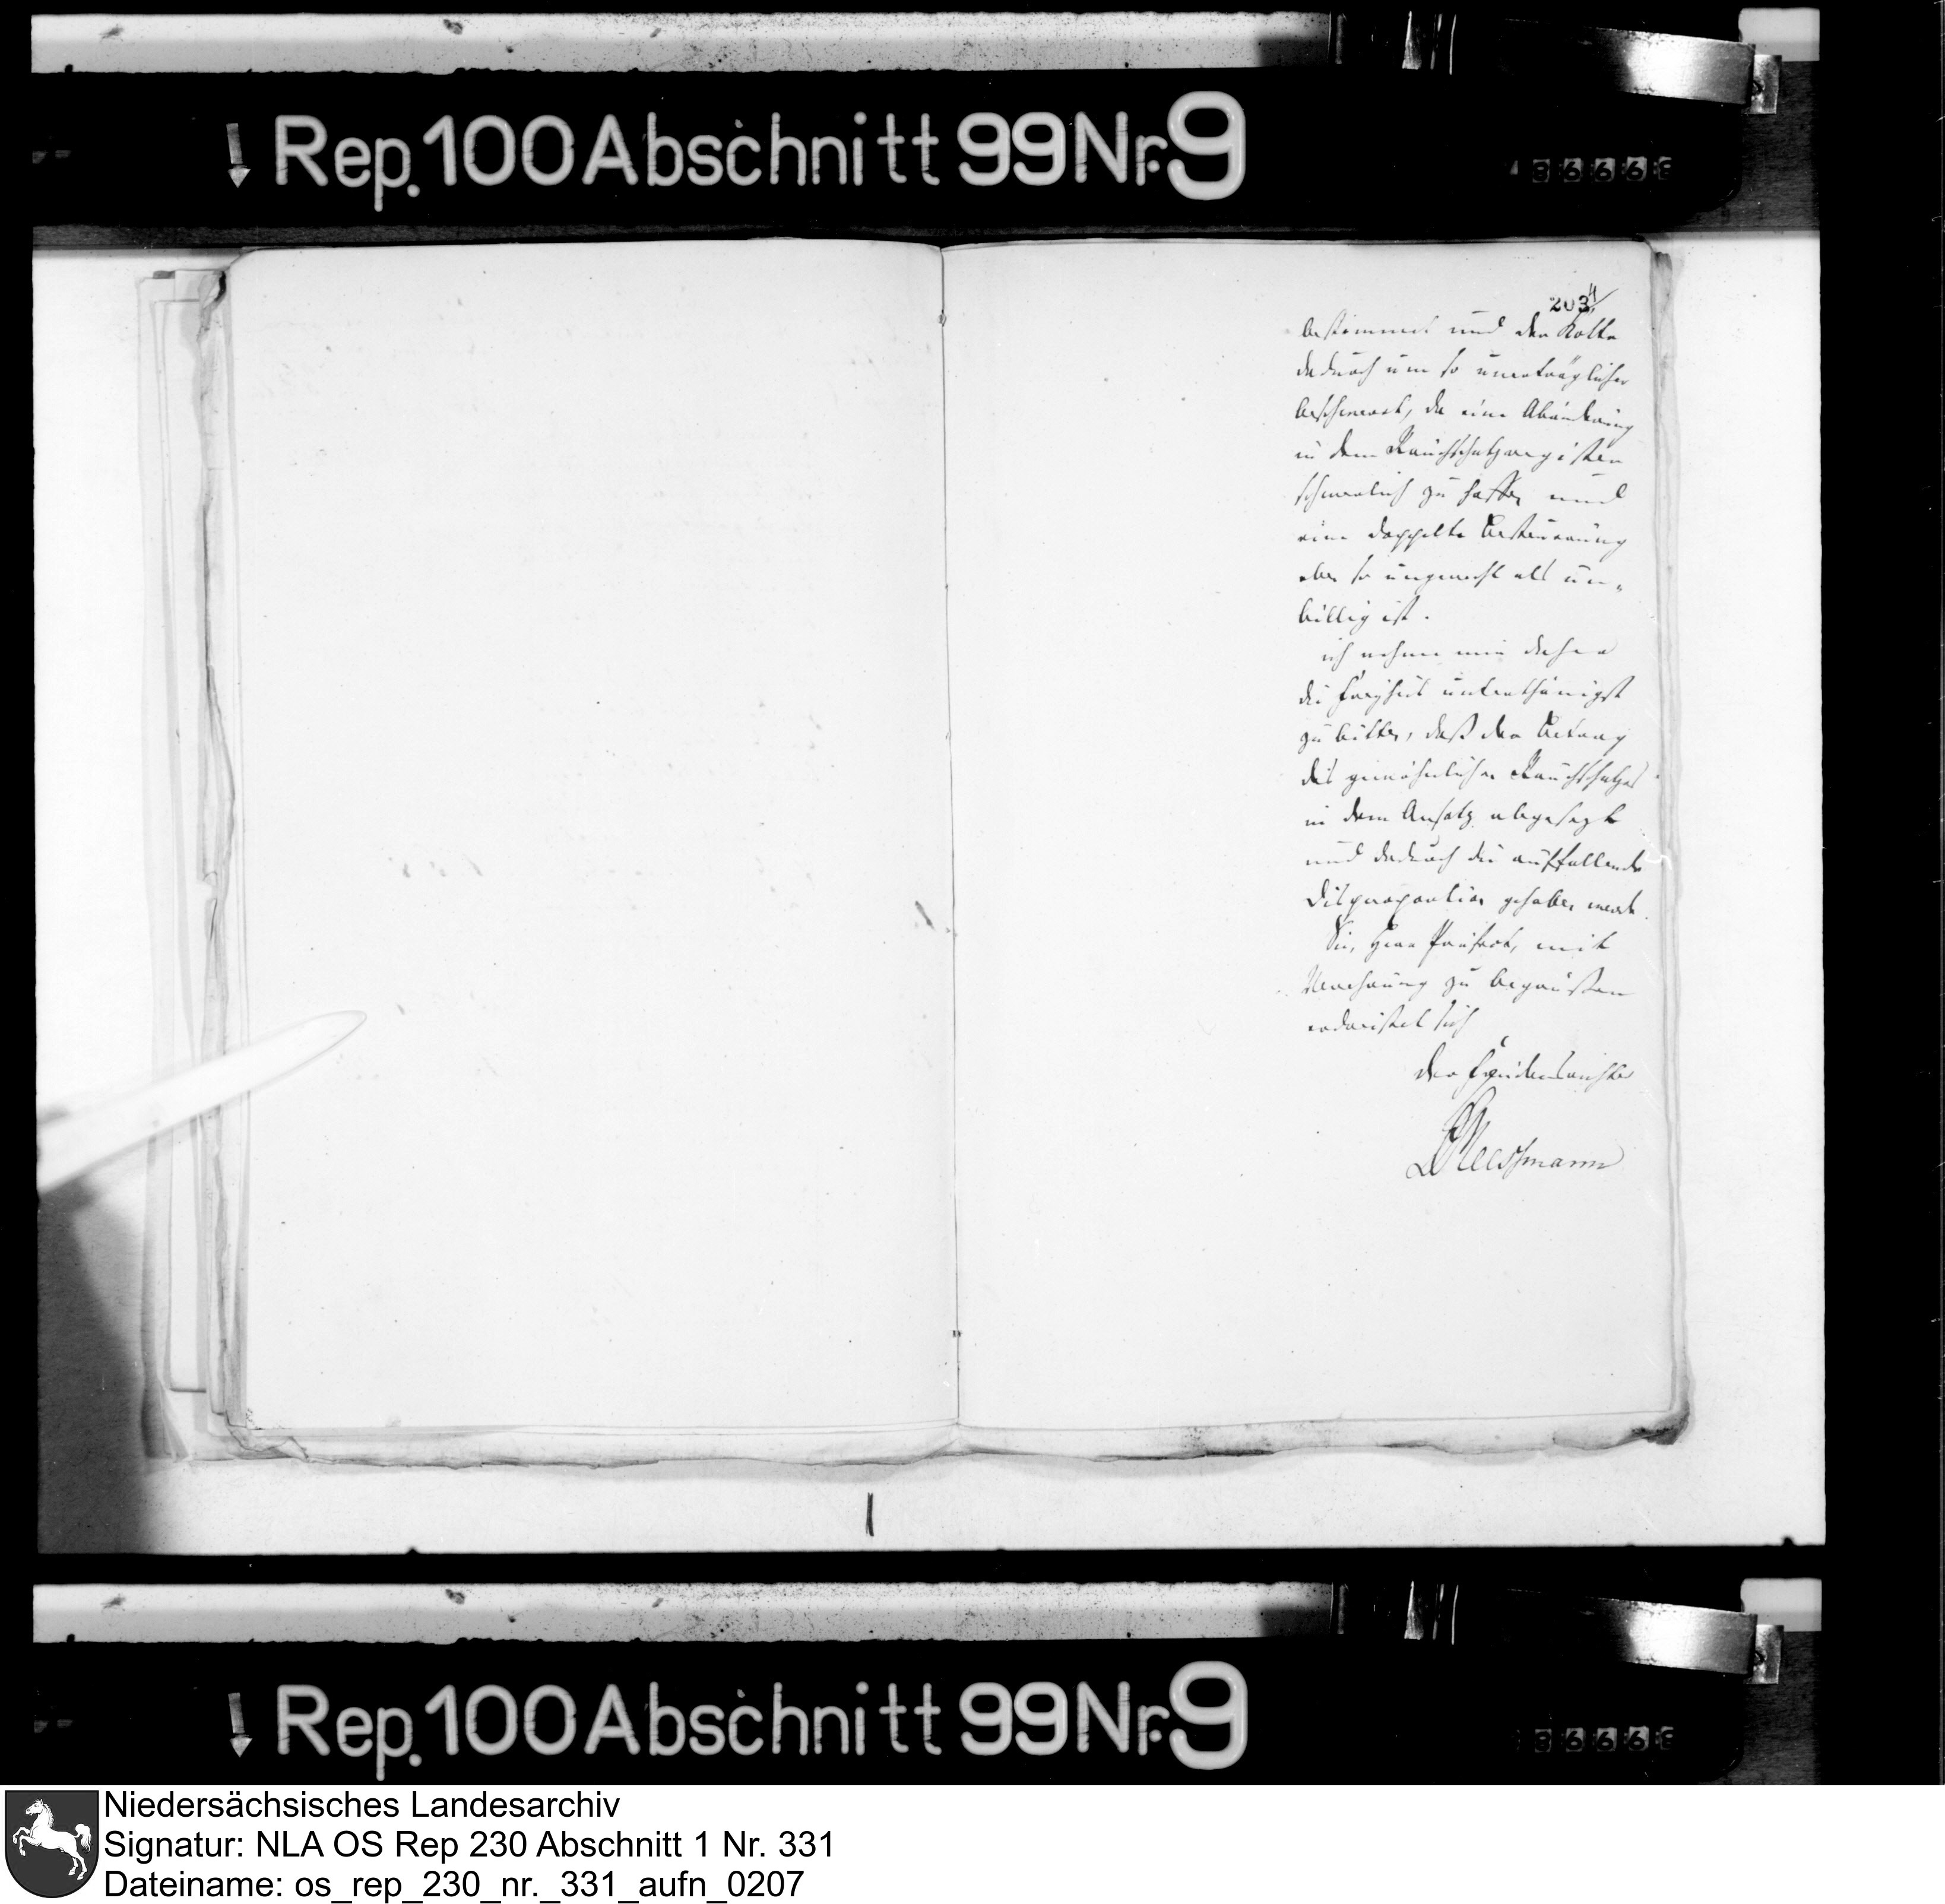 Rep. 100 Abschnitt 99 Nr. 9
203
bestimmet und der Kötter
dadurch um so unerträglicher
beschwert, da eine Abänderung
in dem Rauchschatzregister
schwerlich zu hoffen und
eine doppelte Besteurung
eben so ungerecht als un-
billig ist.
ich nehme mir daher
die Freyheit unterthänigst
zu bitten, daß der Betrag
des gewöhnlichen Rauchschatzes
in dem Ansatz abgesetzt
und dadurch die auffallende
Disproportion gehoben werde.
Sie, Herr Präfect, mit
Verehrung zu begrüßen
erdreistet sich
der Friedensrichter
Rep. 100 Abschnitt 99 Nr. 9
Niedersächsisches Landesarchiv
Signatur: NLA OS Rep 230 Abschnitt 1 Nr. 331
Dateiname: os_rep_230_nr._331_aufn_0207